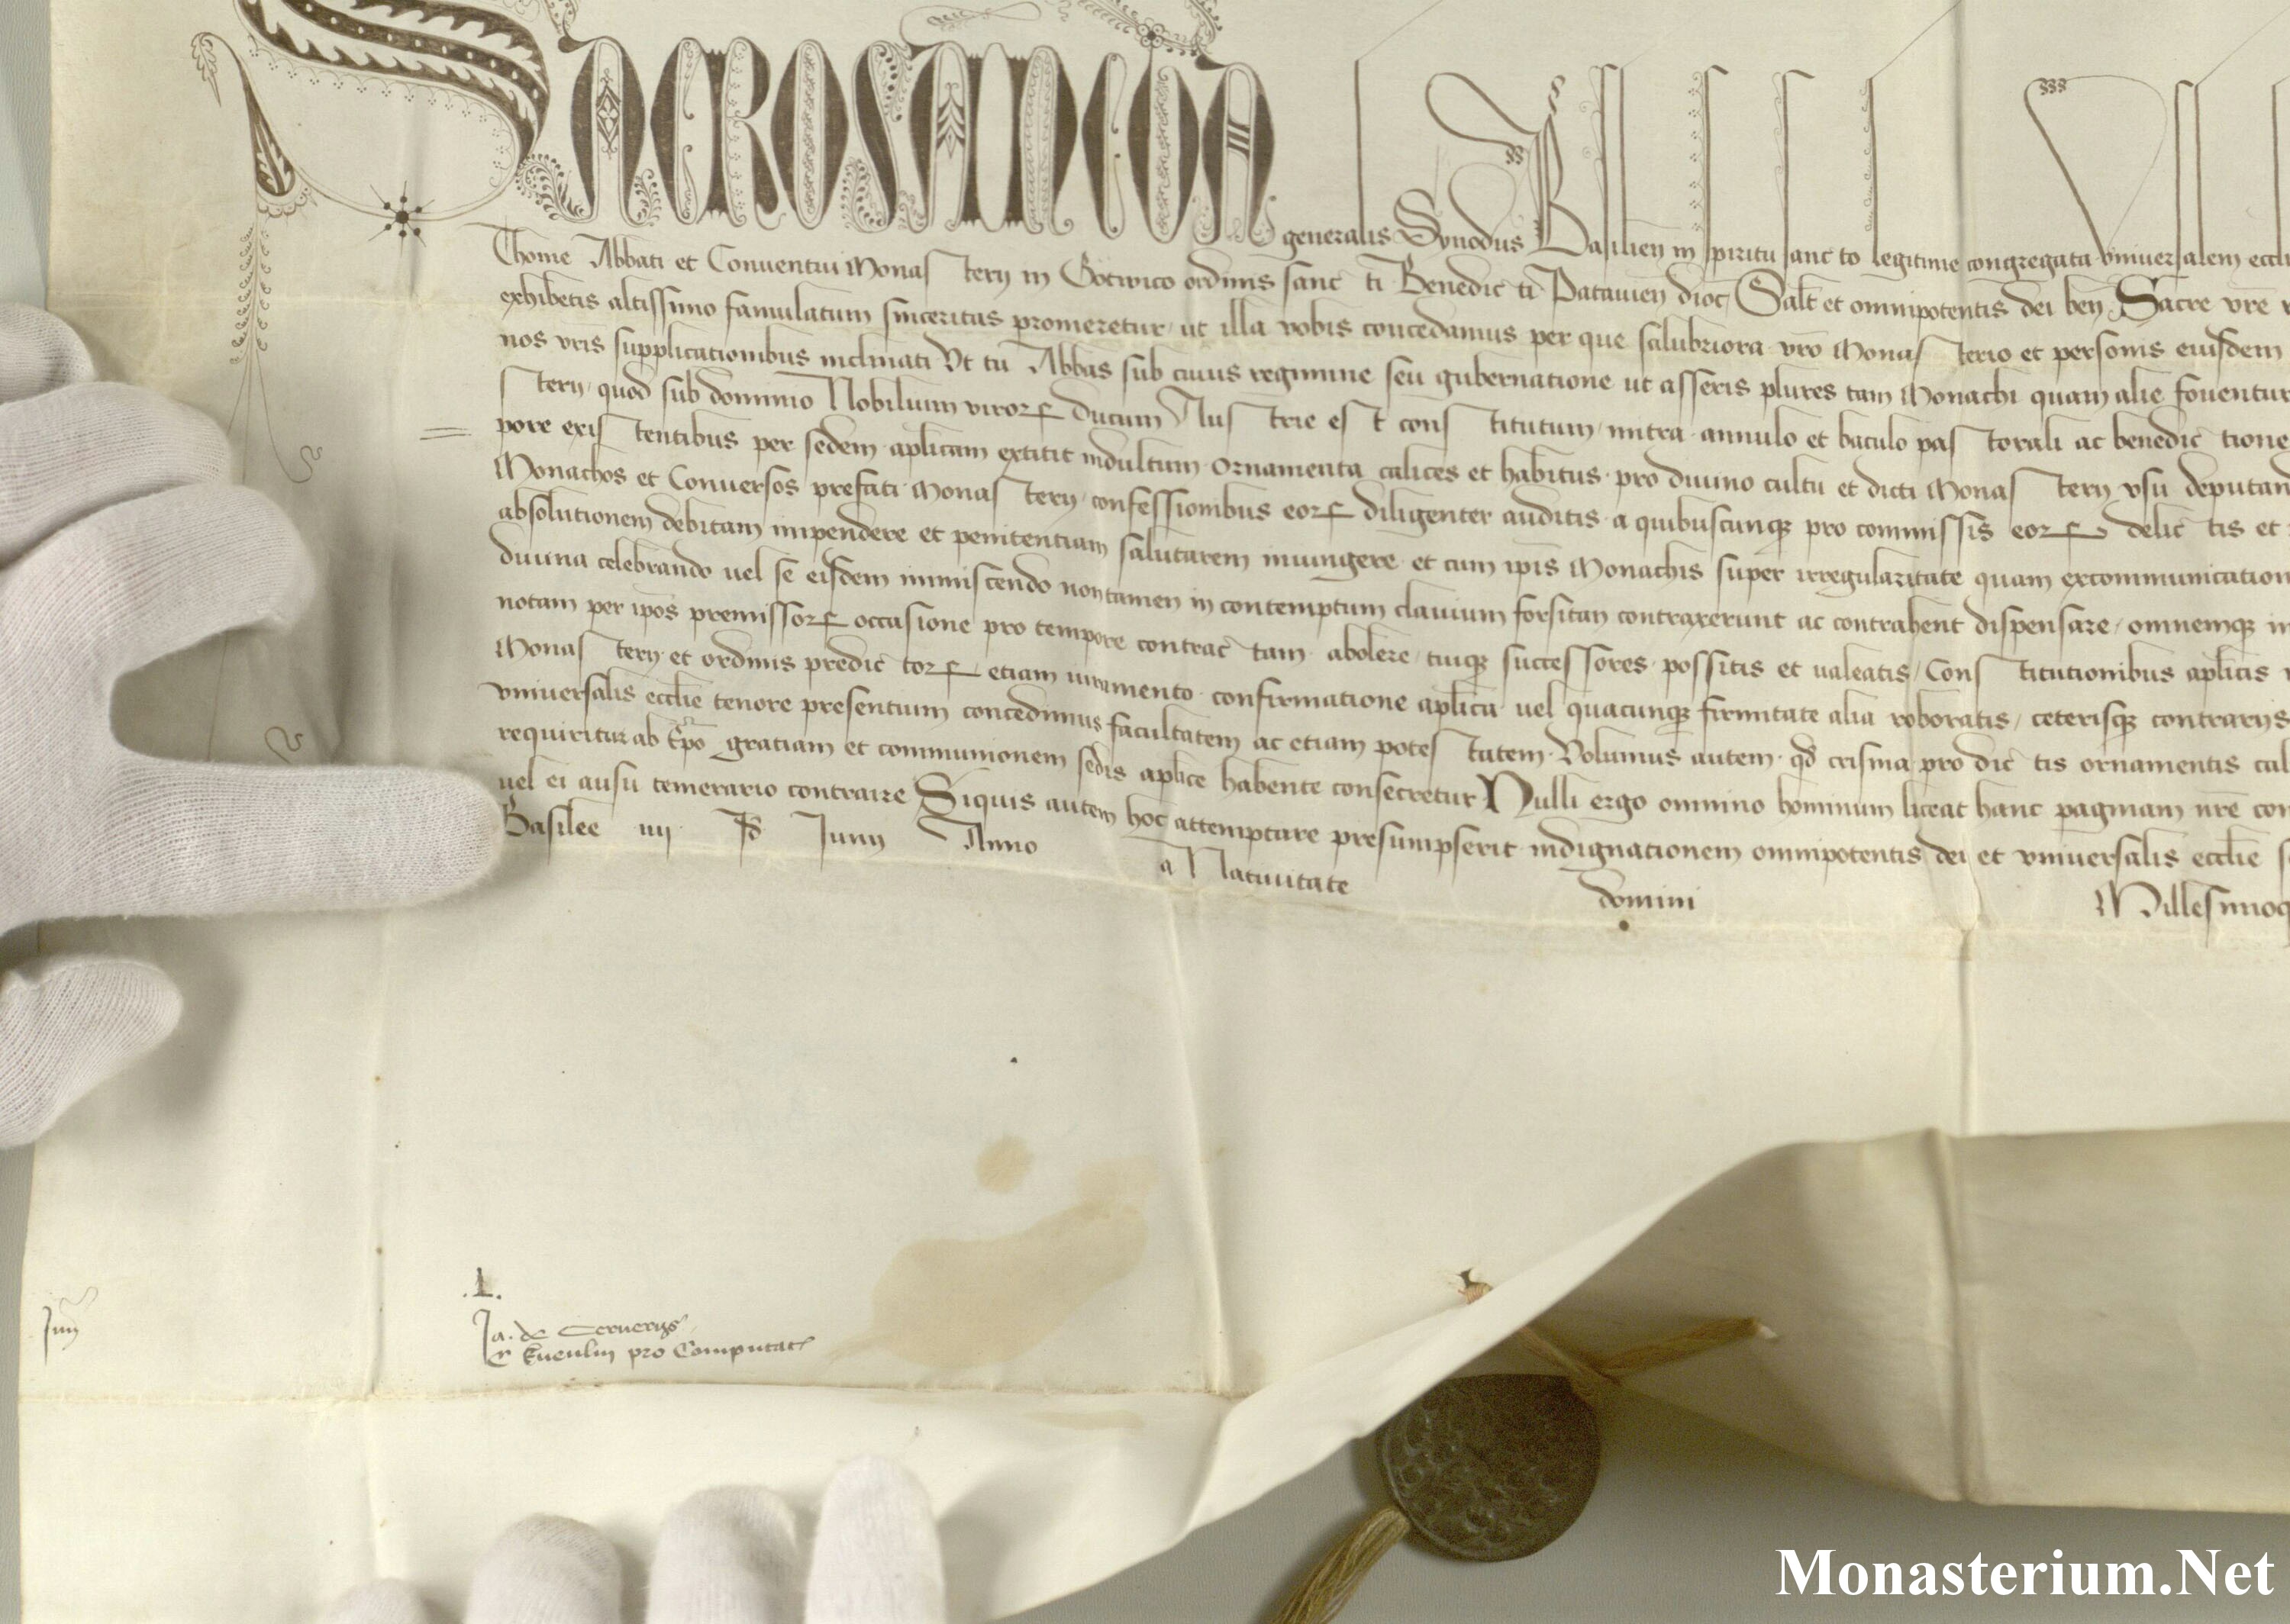 SACROSANCTA generalis Synodus Basilien in spiritu sancto legitime congregata vniuersalem eccli
Thome Abbati et Conuentui Monastery in Gotwico ordinis sancti Benedicti Patauien dioc Salt et omnipotentis dei ben Sacre vre
exhibetis altissimo famulatum sinceritas promeretur ut illa vobis concedamus per que salubriora vro Monasterio et personis eiusdem
nos vris supplicationibus inclinati Vt tu Abbas sub cuius regimine seu gubernatione ut asseris plures tam Monachi quam alie fouentur
stery quod sub dominio Nobilium viroꝝ ducum Austrie est constitutum mitra annulo et baculo pastorali ac benedictione
pore existentibus per sedem aplicam extitit indultum ornamenta calices et habitus pro diuino cultu et dicti Monastery vsu deputand
Monachos et Conuersos prefati Monastery confessionibus eoꝝ diligenter auditis a quibuscunqꝫ pro commissis eoꝝ delictis et
absolutionem debitam impendere et penitentiam salutarem iniungere et cum ipis Monachis super irregularitate quam excommunication
diuina celebrando uel se eisdem inmiscendo non tamen in contemptum clauium forsitan contraxerunt ac contrahent dispensare omnemqꝫ in
notam per ipos premissoꝝ occasione pro tempore contractam abolere tuiqꝫ successores possitis et ualeatis Constitutionibus aplicis
Monastery et ordinis predictoꝝ etiam iuramento confirmatione aplica uel quacunqꝫ firmitate alia roboratis ceterisqꝫ contrarys
vniuersalis ecclie tenore presentium concedimus facultatem ac etiam potestatem Volumus autem qd crisma pro dictis ornamentis cal
requiritur ab Epo gratiam et communionem sedis aplice habente consecretur Nulli ergo omnino hominum liceat hanc paginam nre con
uel ei ausu temerario contraire Siquis autem hoc attemptare presumpserit indignationem omnipotentis dei et vniuersalis ecclie
Basilee iiij Id Iuny Anno a Natiuitate domini Millesimoq
.L.
Ja. de Ceruerys
pro Computat
Monasterium.Net